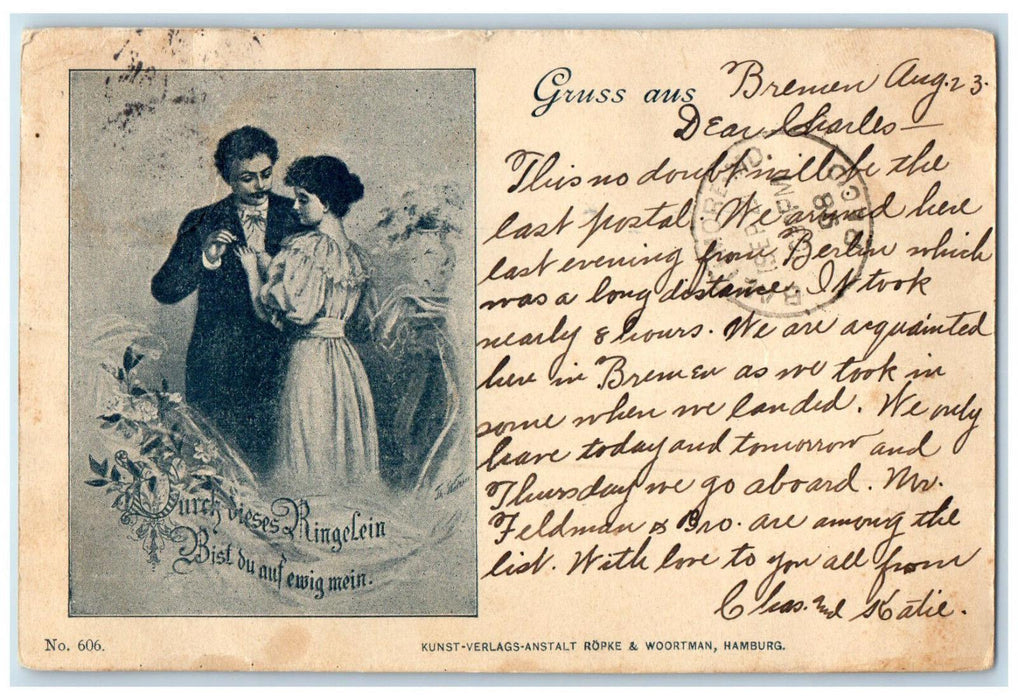 Gruss aus Bremen Aug. 23.
Dear Charles—
This no doubt will be the
last postal. We arrived here
last evening from Berlin which
was a long distance. It took
nearly 8 hours. We are acquainted
here in Bremen as we took in
some when we landed. We only
have today and tomorrow and
Thursday we go aboard. Mr.
Feldman & Bro. are among the
list. With love to you all from
Chas. and Katie.
Durch dieses Ringelein
Bist du auf ewig mein.
No. 606.
KUNST-VERLAGS-ANSTALT RÖPKE & WOORTMAN, HAMBURG.